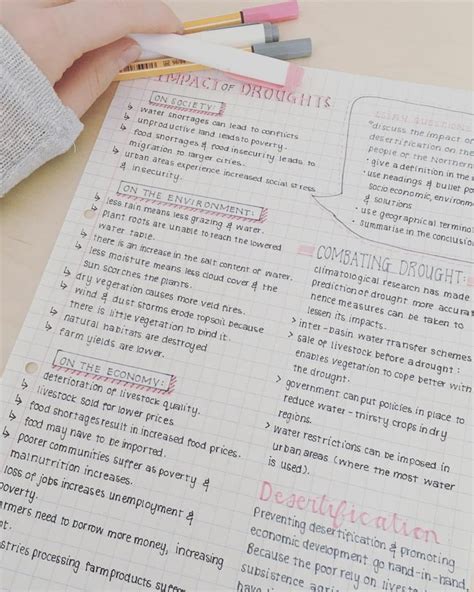 IMPACT OF DROUGHTS
ON SOCIETY:
↳ water shortages can lead to conflicts
↳ unproductive land leads to poverty.
↳ food shortages & food insecurity leads to
migration to larger cities.
↳ urban areas experience increased social stress
& insecurity.
ON THE ENVIRONMENT:
↳ less rain means less grazing & water.
↳ Plant roots are unable to reach the lowered
water table.
↳ there is an increase in the salt content of water.
↳ less moisture means less cloud cover & the
sun scorches the plants.
↳ dry vegetation causes more veld fires.
↳ wind & dust storms erode topsoil because
there is little vegetation to bind it.
↳ natural habitats are destroyed
↳ farm yields are lower.
ON THE ECONOMY:
↳ deterioration of livestock quality.
↳ livestock sold for lower prices.
↳ food shortages result in increased food prices.
↳ food may have to be imported.
↳ poorer communities suffer as poverty &
malnutrition increases.
loss of jobs increases unemployment &
poverty.
farmers need to borrow more money, increasing
industries processing farm products suffer
ESSAY QUESTION
• discuss the impact of
desertification on the
people of the Northern
• give a definition in the
• use headings & bullet po
socio economic, environ
& solutions
• use geographical termino
• summarise in the conclusion
COMBATING DROUGHT:
climatological research has made
prediction of drought more accurat
hence measures can be taken to
lessen its impacts.
> inter-basin water transfer schemes
> sale of livestock before a drought:
enables vegetation to cope better with
the drought.
> government can put policies in place to
reduce water-thirsty crops in dry
regions.
> water restrictions can be imposed in
urban areas (where the most water
is used).
Desertification
Preventing desertification & promoting
economic development go hand-in-hand,
Because the poor rely on livestock
subsistence agric